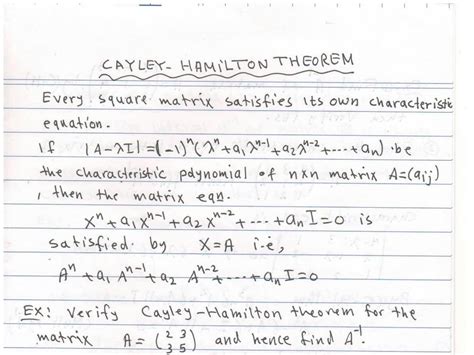 CAYLEY-HAMILTON THEOREM
Every square matrix satisfies its own characteristic
equation.
If |A-λI|=(-1)ⁿ(λⁿ+a₁λⁿ⁻¹+a₂λⁿ⁻²+----+aₙ) be
the characteristic polynomial of nxn matrix A=(aij)
, then the matrix eqn.
Xⁿ+a₁Xⁿ⁻¹+a₂Xⁿ⁻²+----+aₙI=0 is
satisfied by X=A i.e,
Aⁿ+a₁Aⁿ⁻¹+a₂Aⁿ⁻²+----+aₙI=0
EX: Verify Cayley-Hamilton theorem for the
matrix A = (2 3
3 5) and hence find A⁻¹.